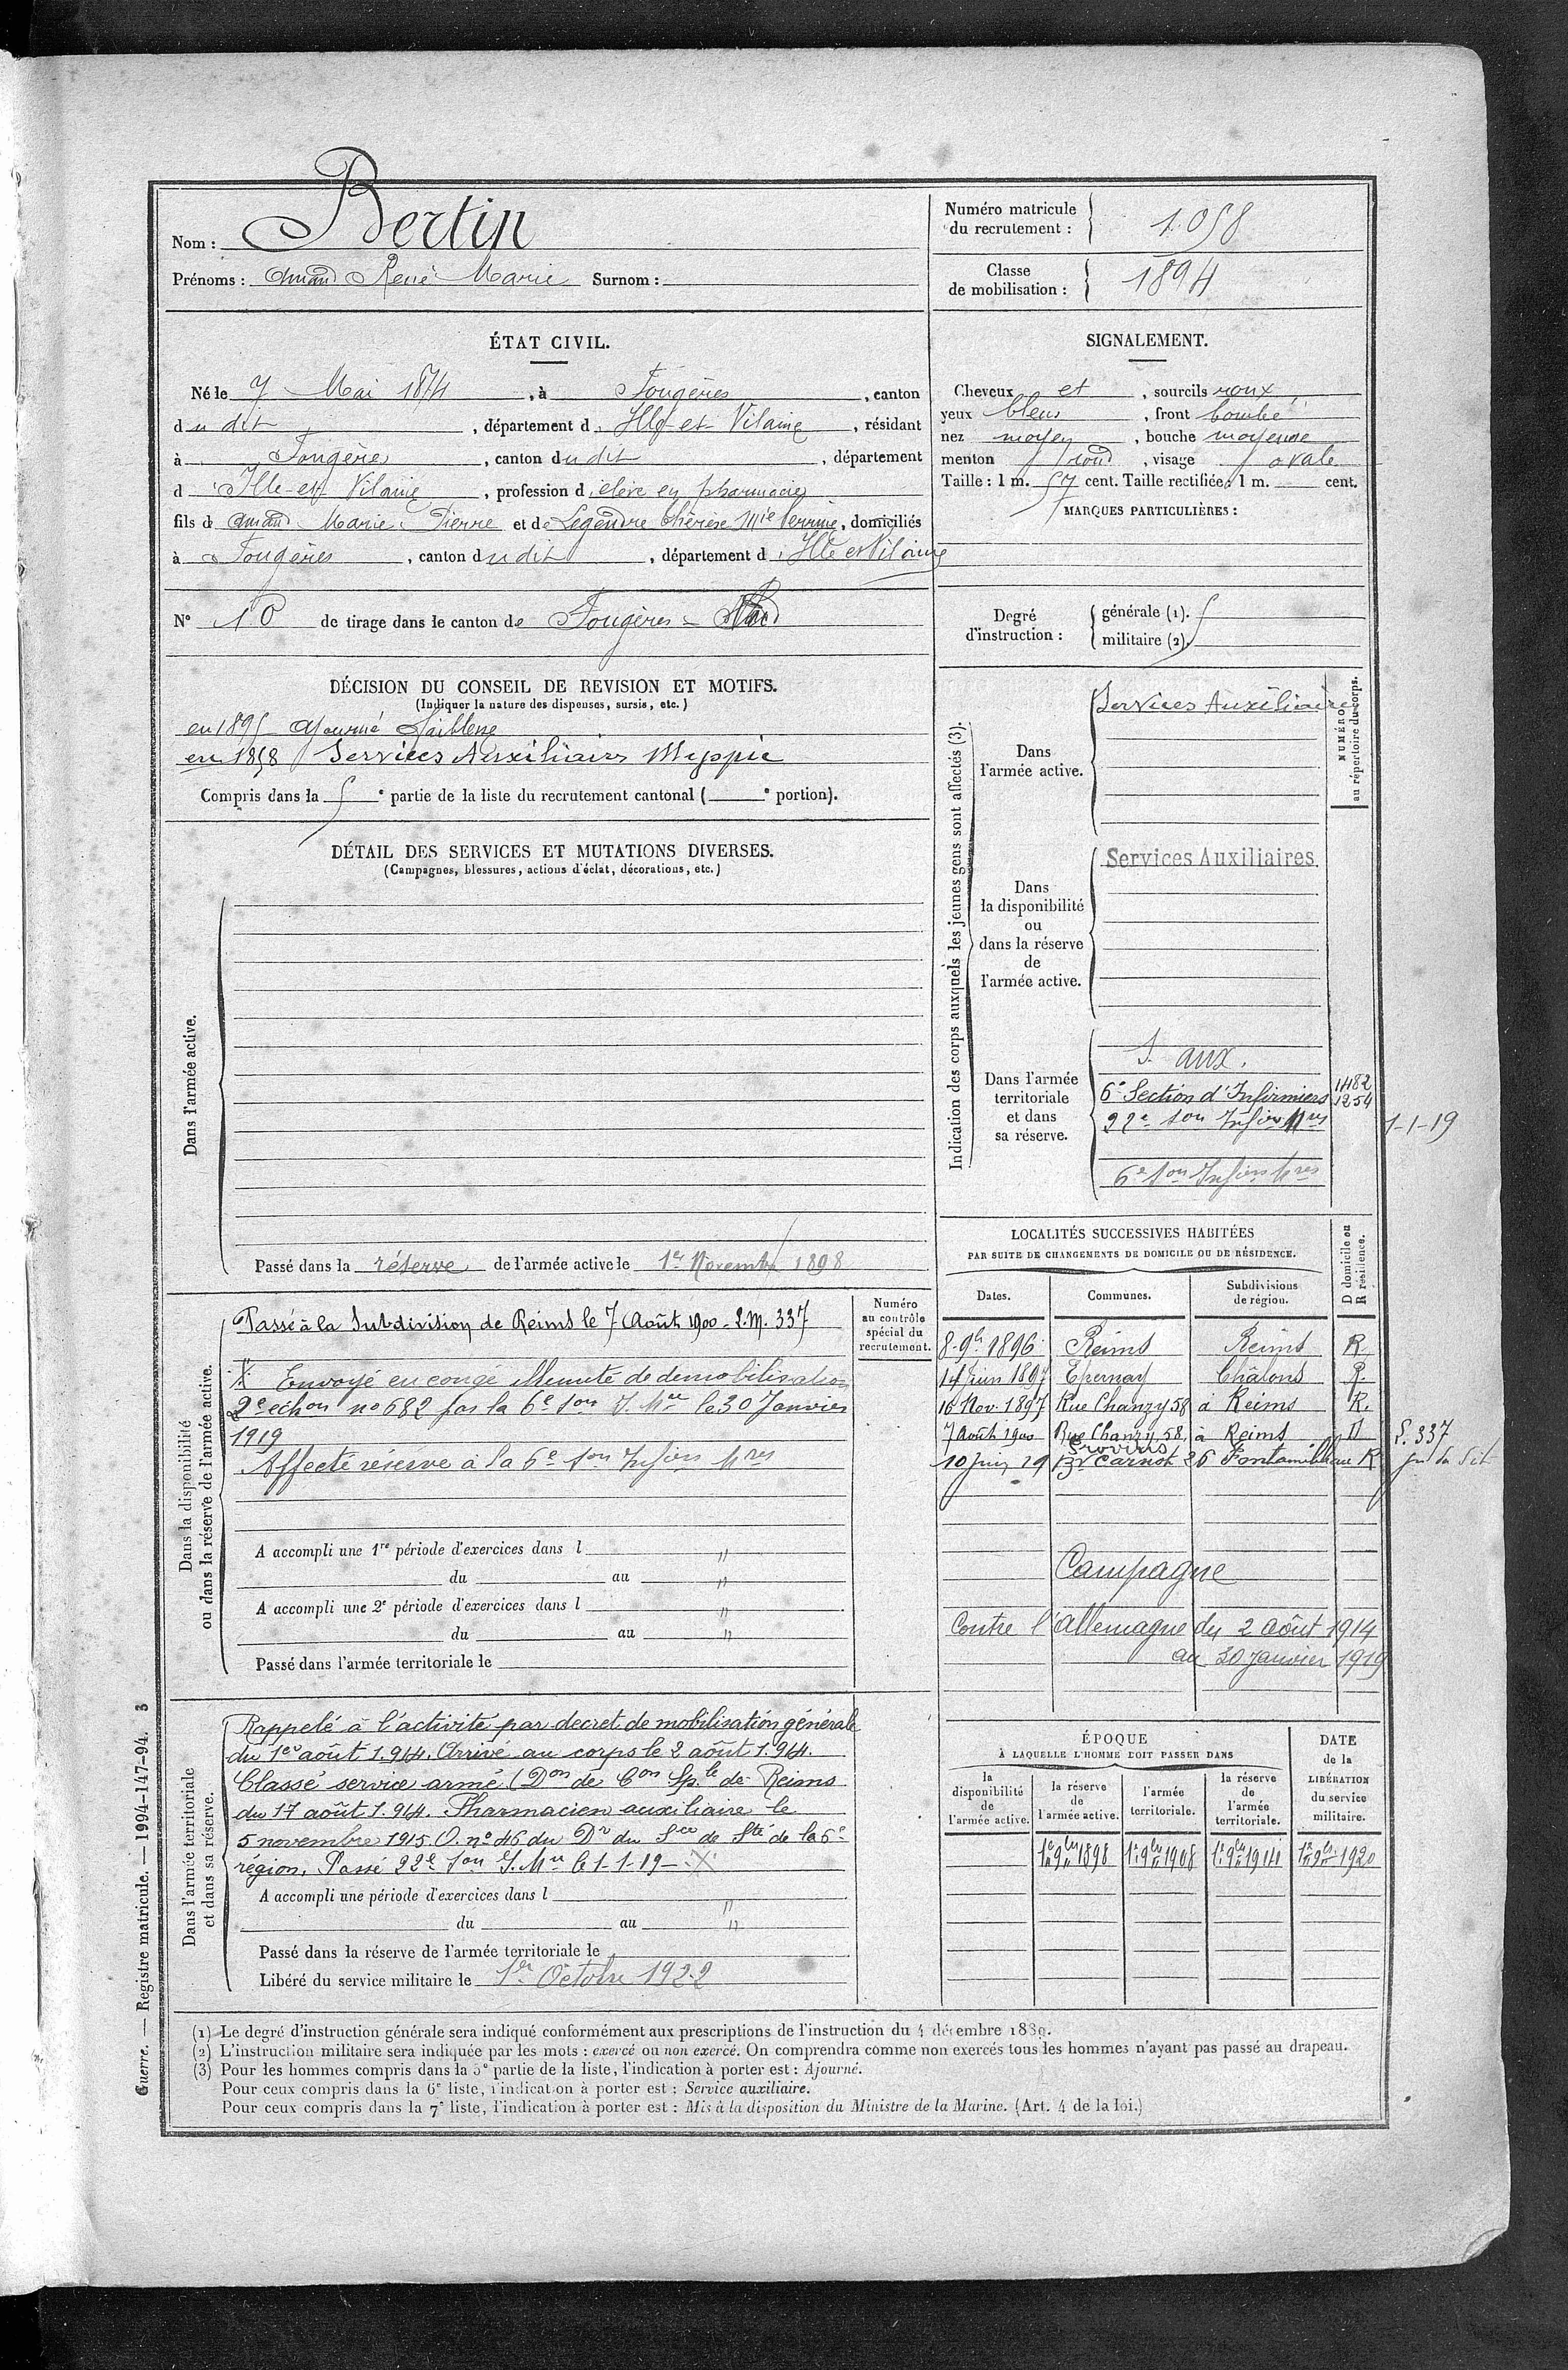 Nom : Bertin
Prénoms : Amand René Marie Surnom :
Numéro matricule du recrutement : 1.058
Classe de mobilisation : 1894
ÉTAT CIVIL.
Né le 7 Mai 1874, à Fougères, canton
dudit, département d'Ille-et-Vilaine, résidant
à Fougères, canton dudit, département
d'Ille-et-Vilaine, profession d'élève en pharmacie
fils de Amand Marie Pierre et de Legendre Thérèse Mie Perrine, domiciliés
à Fougères, canton dudit, département d'Ille et Vilaine
N° 10 de tirage dans le canton de Fougères - Nord
SIGNALEMENT.
Cheveux et, sourcils roux
yeux bleus, front bombé
nez moyen, bouche moyenne
menton rond, visage ovale
Taille : 1 m. 57 cent. Taille rectifiée : 1 m. cent.
MARQUES PARTICULIÈRES :
Degré d'instruction : générale (1).
militaire (2).
DÉCISION DU CONSEIL DE REVISION ET MOTIFS.
(Indiquer la nature des dispenses, sursis, etc.)
en 1895 Ajourné faiblesse
en 1898 Services Auxiliaires Myopie
Compris dans la e partie de la liste du recrutement cantonal ( e portion).
DÉTAIL DES SERVICES ET MUTATIONS DIVERSES.
(Campagnes, blessures, actions d'éclat, décorations, etc.)
Dans l'armée active.
Passé dans la réserve de l'armée active le 1er Novembre 1898
Indication des corps auxquels les jeunes gens sont affectés (3).
NUMÉRO au répertoire du corps.
Dans l'armée active.
Services Auxiliaires
Dans la disponibilité ou dans la réserve de l'armée active.
Services Auxiliaires
Dans l'armée territoriale et dans sa réserve.
S. aux.
6e Section d'Infirmiers 1482
1254
22e Son Infirs Mres 1-1-19
6e Son Infirs Mres
Dans la disponibilité ou dans la réserve de l'armée active.
Numéro au contrôle spécial du recrutement.
Passé à la Subdivision de Reims le 7 Août 1900 - S.M. 337
X Envoyé en congé illimité de démobilisation
2e échon no 682 par la 6e Son I. Mre le 30 Janvier
1919
Affecté réserve à la 6e Son Infirs Mres
A accompli une 1re période d'exercices dans l "
du au "
A accompli une 2e période d'exercices dans l "
du au "
Passé dans l'armée territoriale le
LOCALITÉS SUCCESSIVES HABITÉES
PAR SUITE DE CHANGEMENTS DE DOMICILE OU DE RÉSIDENCE.
D domicile ou R résidence.
Dates. Communes. Subdivisions de région.
8 9bre 1896 Reims Reims R
14 Juin 1897 Epernay Châlons R.
16 Nov. 1897 Rue Chanzy 58 à Reims R.
7 Août 1900 Rue Chanzy, 58, à Reims D S. 337
Provins
10 Juin 19 Bd Carnot 26 Fontainebleau R
Campagne
Contre l'Allemagne du 2 août 1914
au 30 Janvier 1919
Dans l'armée territoriale et dans sa réserve.
Rappelé à l'activité par décret de mobilisation générale
du 1er août 1.914. Arrivé au corps le 2 août 1.914.
Classé service armé (Don de Con Sple de Reims
du 17 août 1.914. Pharmacien auxiliaire le
5 novembre 1915. O. no 46 du Dr du Sce de Sté de la 6e
région. Passé 22e Son I. Mre le 1-1-19 - X
A accompli une période d'exercices dans l "
du au "
Passé dans la réserve de l'armée territoriale le
Libéré du service militaire le 1er Octobre 1922
ÉPOQUE
À LAQUELLE L'HOMME DOIT PASSER DANS
la disponibilité de l'armée active.
la réserve de l'armée active.
l'armée territoriale.
la réserve de l'armée territoriale.
DATE de la LIBÉRATION du service militaire.
1er 9bre 1898 1er 9bre 1908 1er 9bre 1914 1er 9bre 1920
(1) Le degré d'instruction générale sera indiqué conformément aux prescriptions de l'instruction du 4 décembre 1889.
(2) L'instruction militaire sera indiquée par les mots : exercé ou non exercé. On comprendra comme non exercés tous les hommes n'ayant pas passé au drapeau.
(3) Pour les hommes compris dans la 5e partie de la liste, l'indication à porter est : Ajourné.
Pour ceux compris dans la 6e liste, l'indication à porter est : Service auxiliaire.
Pour ceux compris dans la 7e liste, l'indication à porter est : Mis à la disposition du Ministre de la Marine. (Art. 4 de la loi.)
Guerre. — Registre matricule. — 1994-147-94. 3